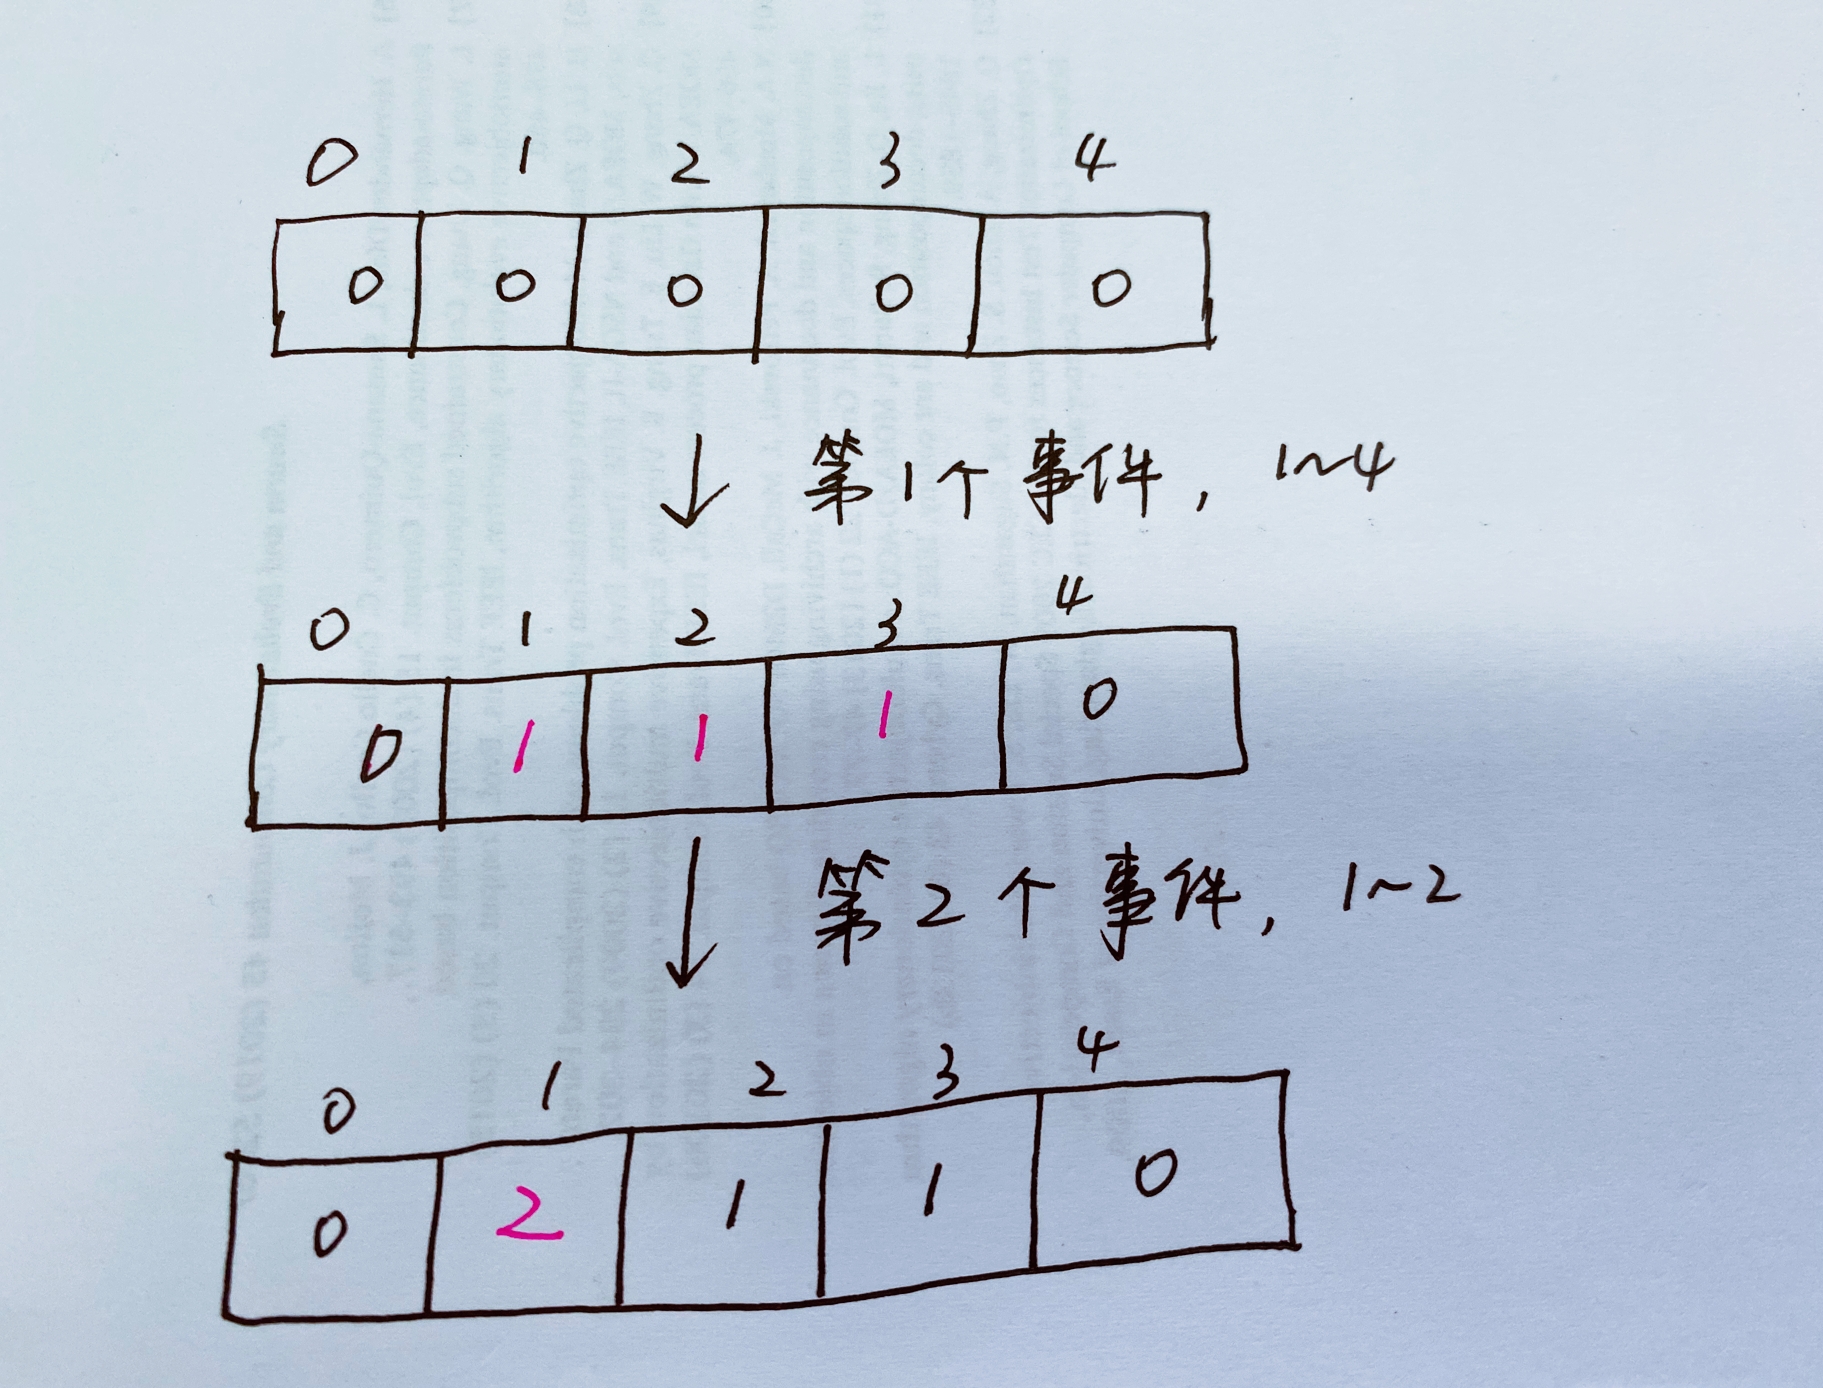 0 1 2 3 4
0 0 0 0 0
↓ 第1个事件, 1~4
0 1 2 3 4
0 1 1 1 0
↓ 第2个事件, 1~2
0 1 2 3 4
0 2 1 1 0